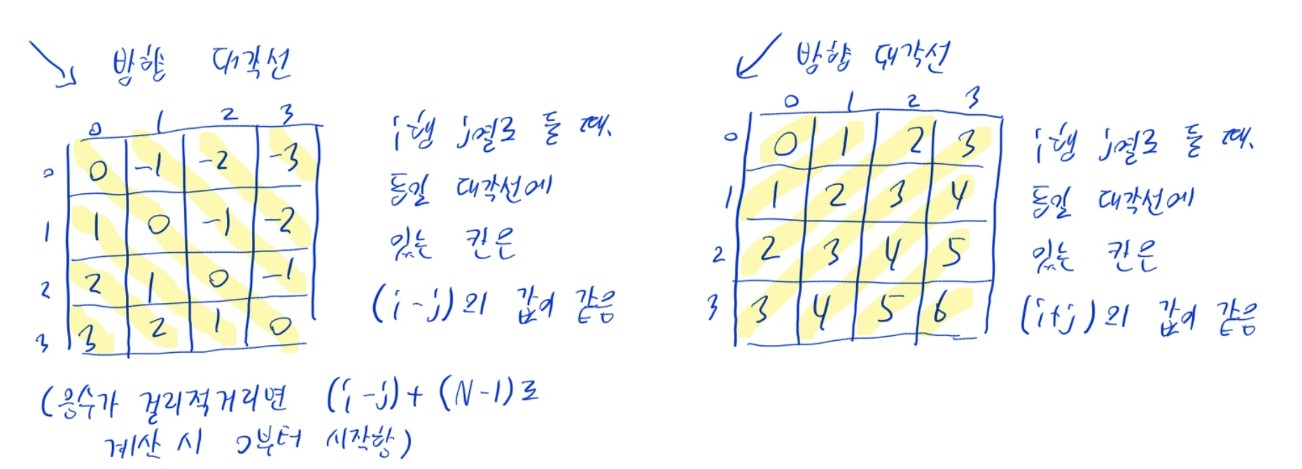 ↘ 방향 대각선
0 1 2 3
0 0 -1 -2 -3
1 1 0 -1 -2
2 2 1 0 -1
3 3 2 1 0
i행 j열로 둘 때,
동일 대각선에
있는 칸은
(i-j)의 값이 같음
(음수가 걸리적거리면 (i-j)+(N-1)로
계산 시 0부터 시작함)
↙ 방향 대각선
0 1 2 3
0 0 1 2 3
1 1 2 3 4
2 2 3 4 5
3 3 4 5 6
i행 j열로 둘 때,
동일 대각선에
있는 칸은
(i+j)의 값이 같음